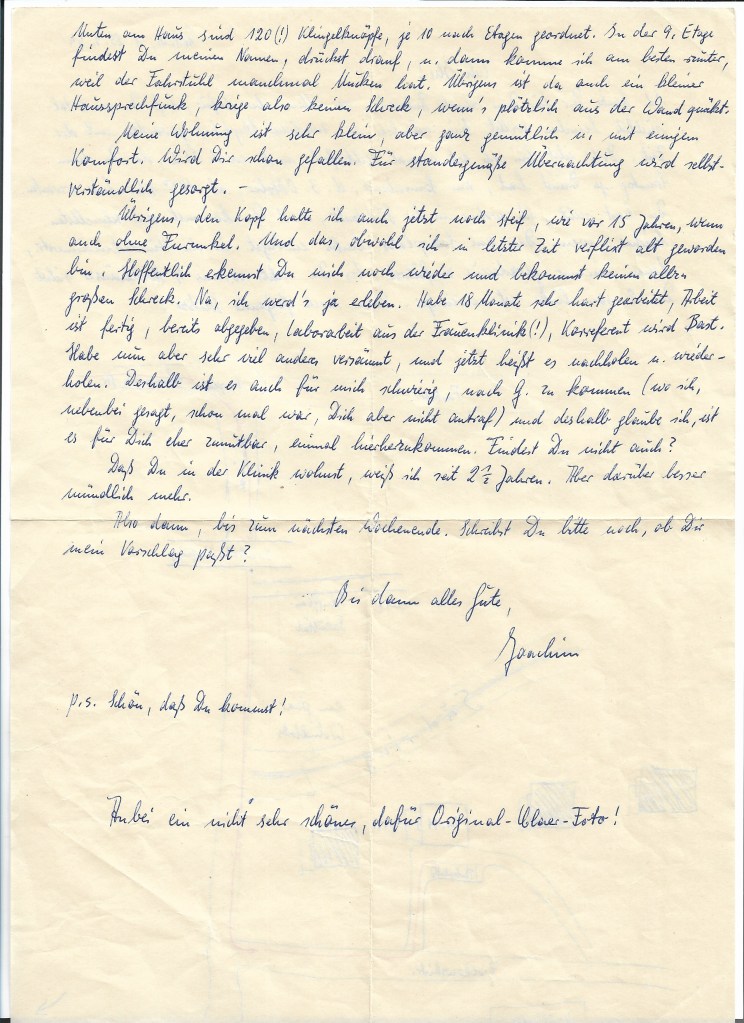 Unten am Haus sind 120(!) Klingelknöpfe, je 10 nach Etagen geordnet. In der 9. Etage
findest Du meinen Namen, drückst drauf, u. dann komme ich am besten runter,
weil der Fahrstuhl manchmal Mucken hat. Übrigens ist da auch ein kleiner
Haussprechfunk, kriege also keinen Schreck, wenn's plötzlich aus der Wand quäkt.
Meine Wohnung ist sehr klein, aber ganz gemütlich u. mit einigem
Komfort. Wird Dir schon gefallen. Für standesgemäße Übernachtung wird selbst-
verständlich gesorgt. –
Übrigens, den Kopf halte ich auch jetzt noch steif, wie vor 15 Jahren, wenn
auch ohne Furunkel. Und das, obwohl ich in letzter Zeit verflixt alt geworden
bin. Hoffentlich erkennst Du mich noch wieder und bekommst keinen allzu
großen Schreck. Na, ich werd's ja erleben. Habe 18 Monate sehr hart gearbeitet, Arbeit
ist fertig, bereits abgegeben, Laborarbeit aus der Frauenklinik(!), Korreferent wird Bast.
Habe nun aber sehr viel anderes versäumt, und jetzt heißt es nachholen u. wieder-
holen. Deshalb ist es auch für mich schwierig, nach G. zu kommen (wo ich,
nebenbei gesagt, schon mal war, Dich aber nicht antraf) und deshalb glaube ich, ist
es für Dich eher zumutbar, einmal hierherzukommen. Findest Du nicht auch?
Daß Du in der Klinik wohnst, weiß ich seit 2 1/2 Jahren. Aber darüber besser
mündlich mehr.
Also dann, bis zum nächsten Wochenende. Schreibst Du bitte noch, ob Dir
mein Vorschlag paßt?
Bis dann alles Gute,
Joachim
P.S. Schön, daß Du kommst!
Anbei ein nicht sehr schönes, dafür Original-Foto!